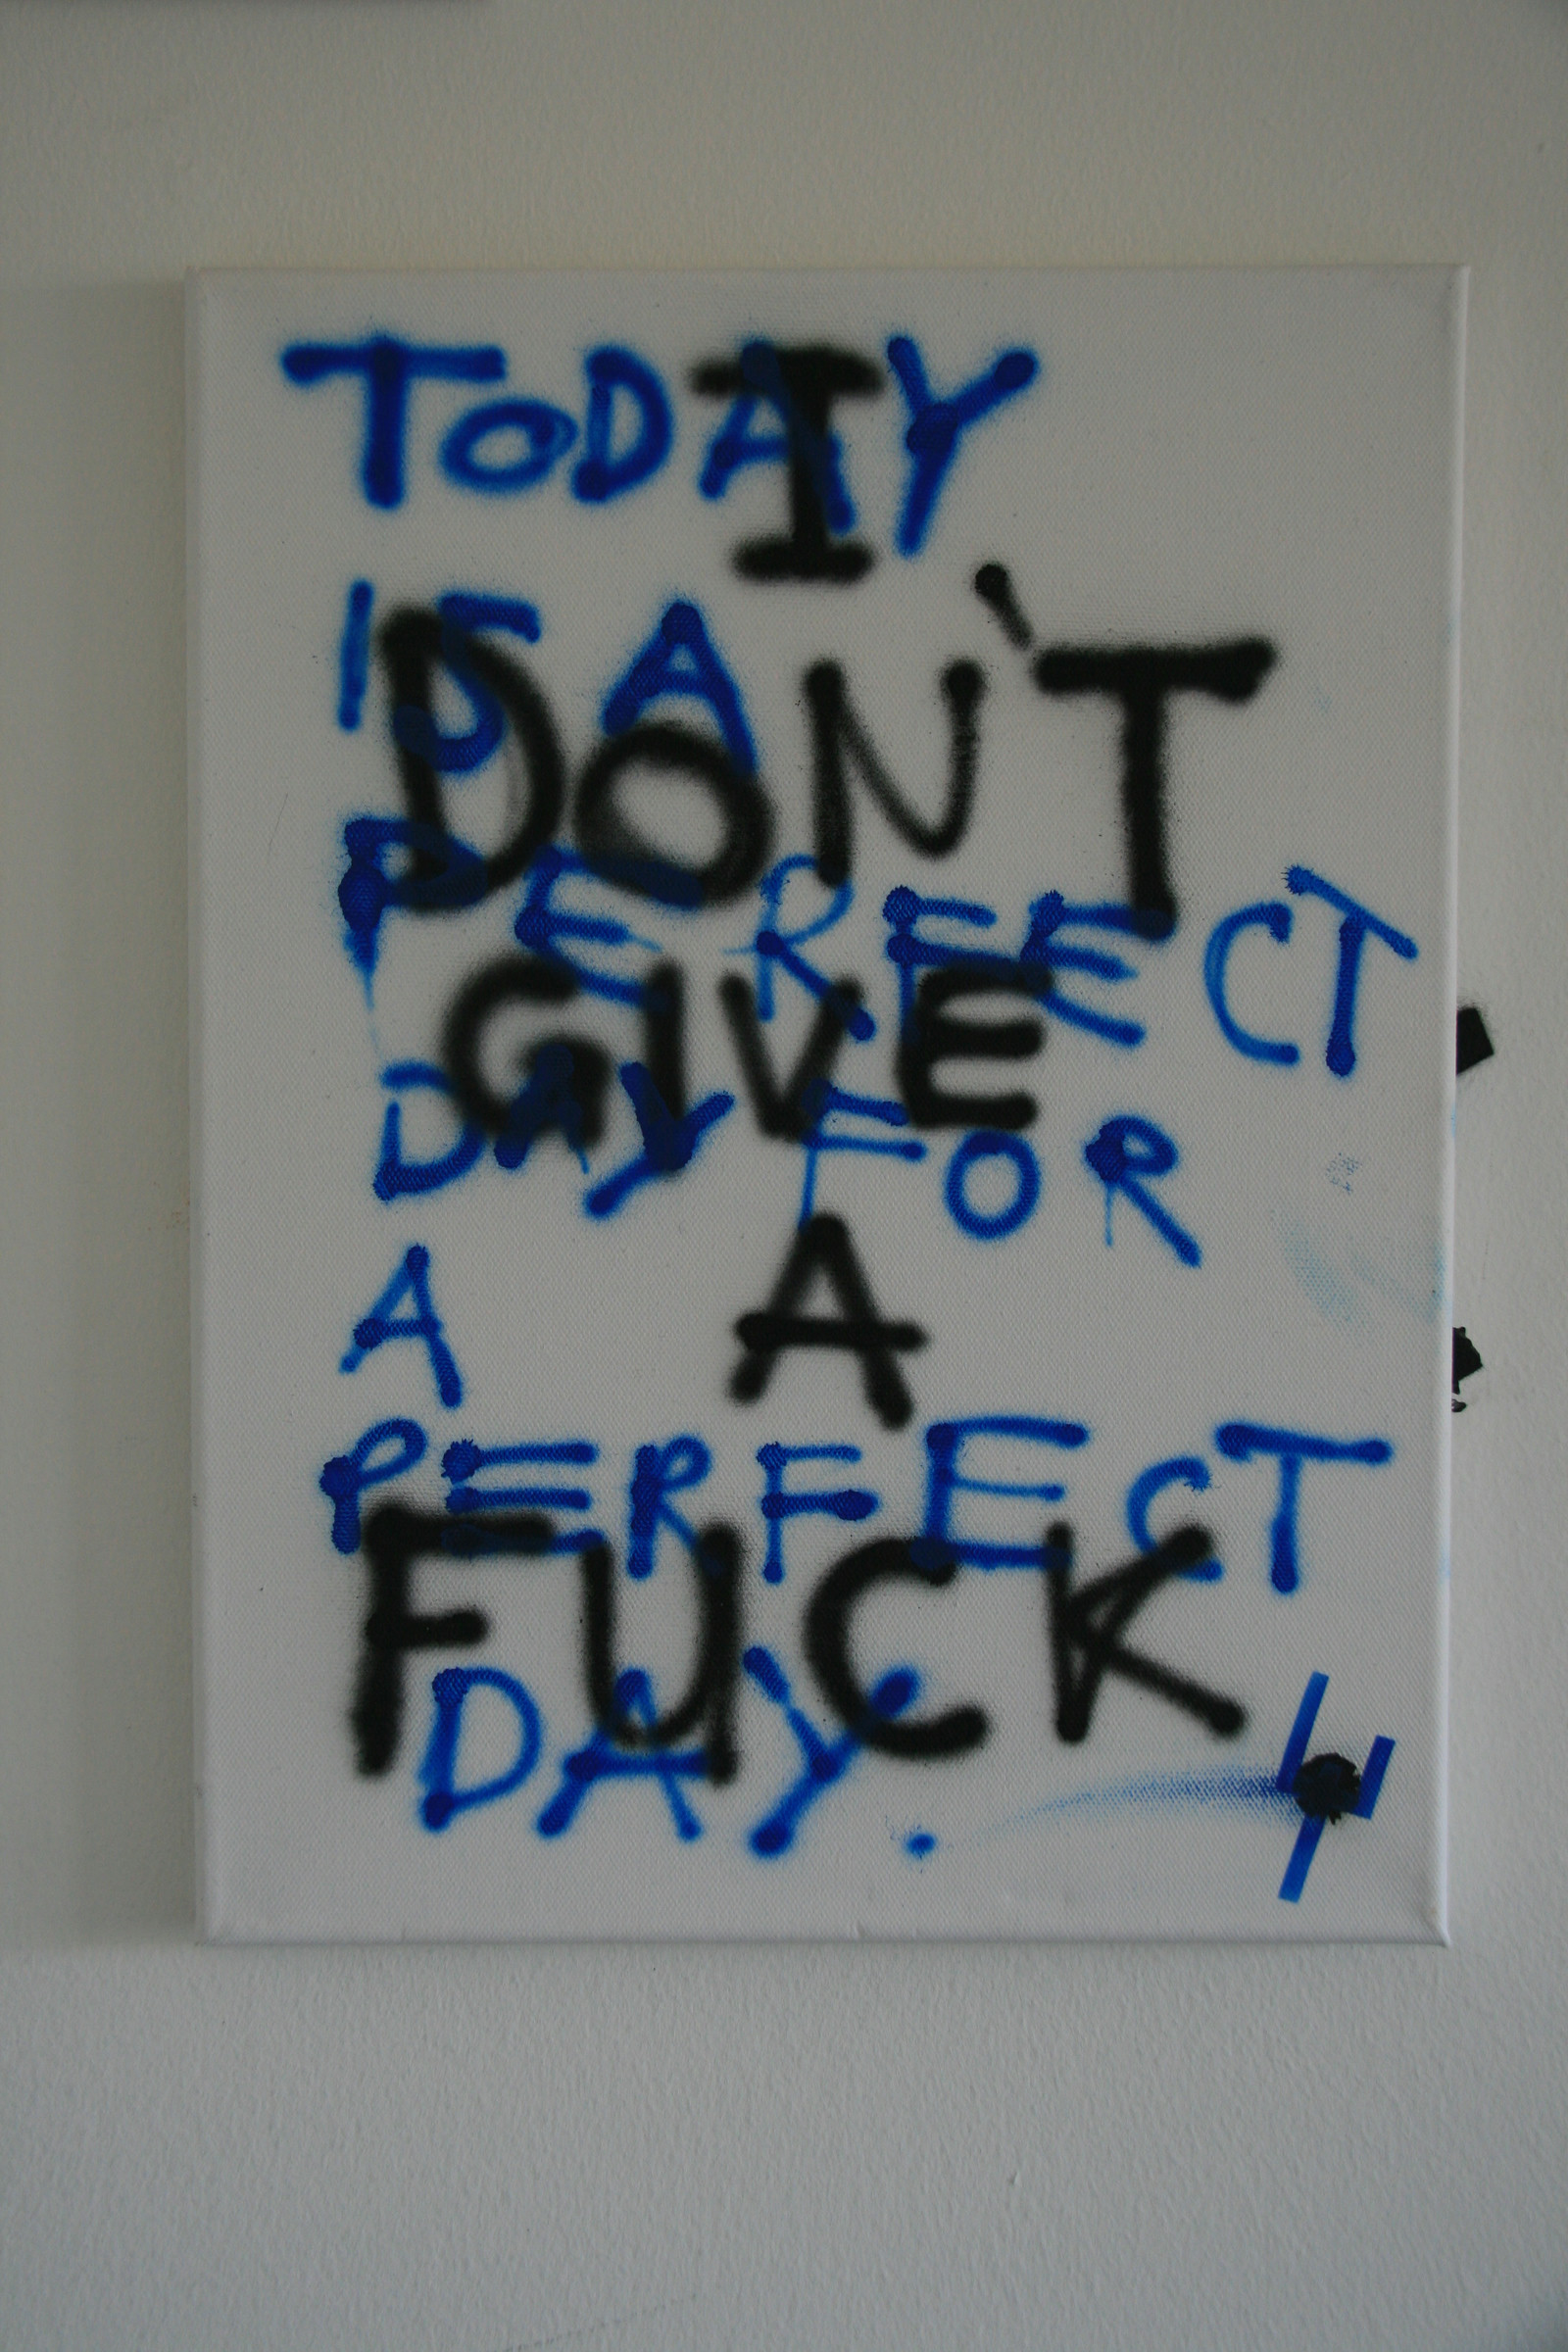 TODAY
IS A
PERFECT
DAY FOR
A
PERFECT
DAY.
I
DON'T
GIVE
A
FUCK